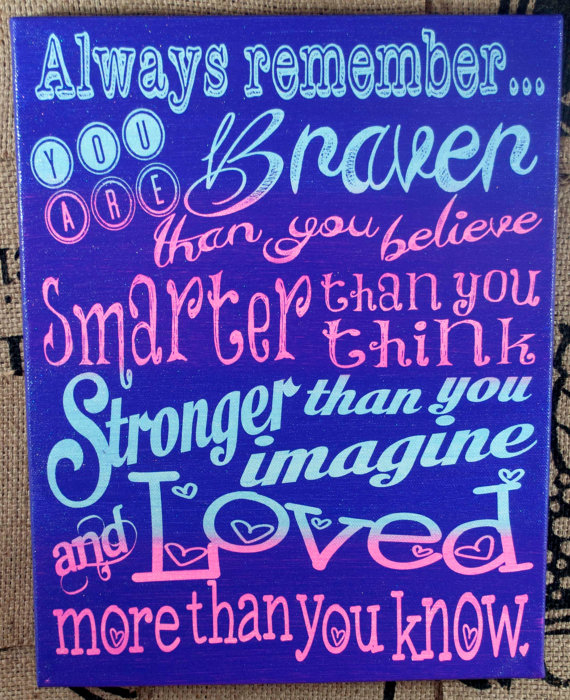 Always remember...
YOU
ARE
Braver
than you believe
Smarter than you
think
Stronger than you
imagine
and Loved
more than you know.